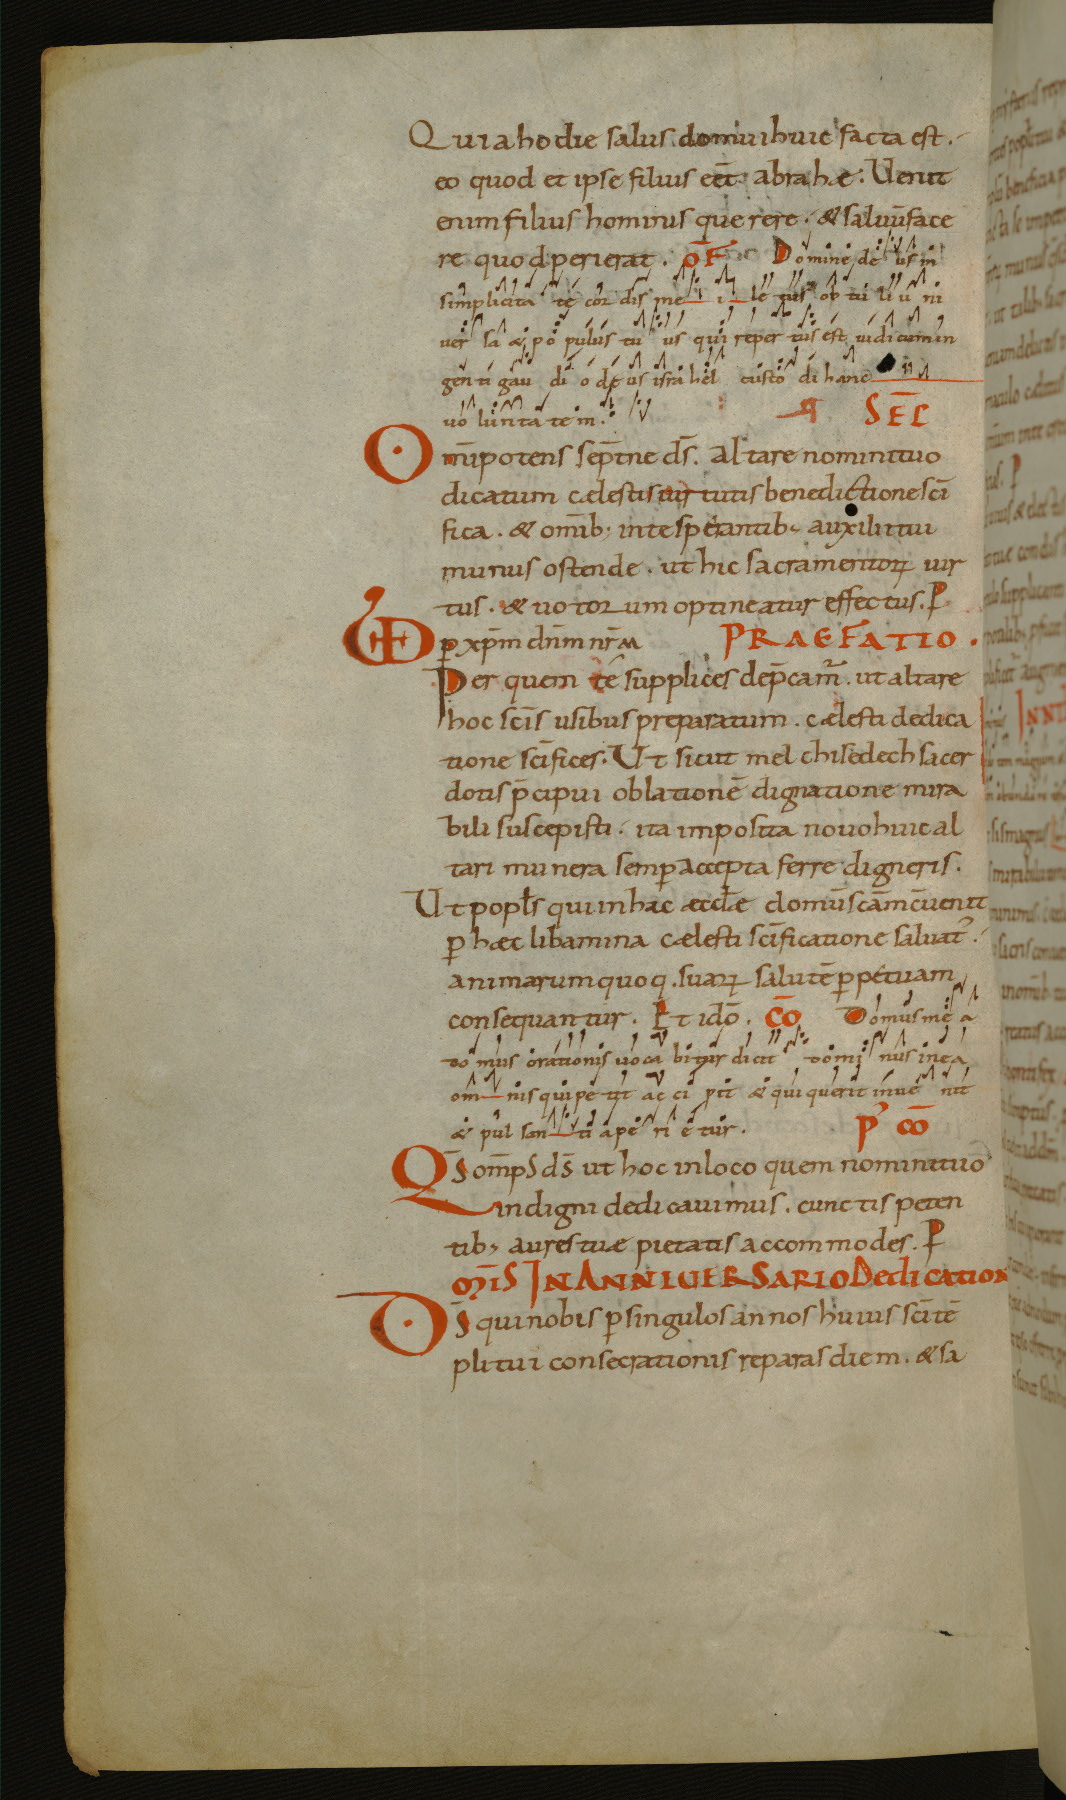 Quia hodie salus domui huic facta est.
eo quod et ipse filius eēt abrahæ: Uenit
enim filius hominis querere. & saluū face
re quod perierat. ōF Domine de us in
simplicita te cor dis me i le tus ob tu li u ni
uer sa & po pulus tu us qui reper tus est uidi cum in
gen ti gau di o deus isra hel custo di hanc
uo lun ta te m. SEC
Omīpotens sēpt̄ne dš. altare nomini tuo
dicatum cælestis uirtutis benedictione sc̄i
fica. & omīb; in te sperantib; auxilii tui
munus ostende. ut hic sacramentorꝝ uir
tus. & uotorum optineatur effectus. P
UD ꝑ xp̄m dn̄m nr̄m PRAEFATIO.
Per quem te supplices dep̄cam̄. ut altare
hoc sc̄is usibus preparatum. cælesti dedica
tione sc̄ifices. Ut sicut melchisedech sacer
dotis p̄cipui oblationē dignatione mira
bili suscepisti. ita imposita nouo huic al
tari munera semꝑ accepta ferre digneris.
Ut popl̄s qui in hac æccl̄æ domū sc̄am c̄uenit
ꝑ hæc libamina cælesti sc̄ificatione saluat̄.
animarum quoq. suarꝝ salutē ꝑpetuam
consequantur. Et idō. C̄O Domus me a
do mus orationis uoca bitur dicit domi nus in ea
om nis qui pe tit ac ci pit & qui querit inue nit
& pul san ti ape ri e tur. P̄ C̄O
Qs̄ omp̄s dš ut hoc in loco quem nomini tuo
indigni dedicauimus. cunctis peten
tib; aures tuæ pietatis accommodes. P
MĪS IN ANNIUERSARIO Dedication
Dš qui nobis ꝑ singulos annos huius sc̄i tē
pli tui consecrationis reparas diem. & sa